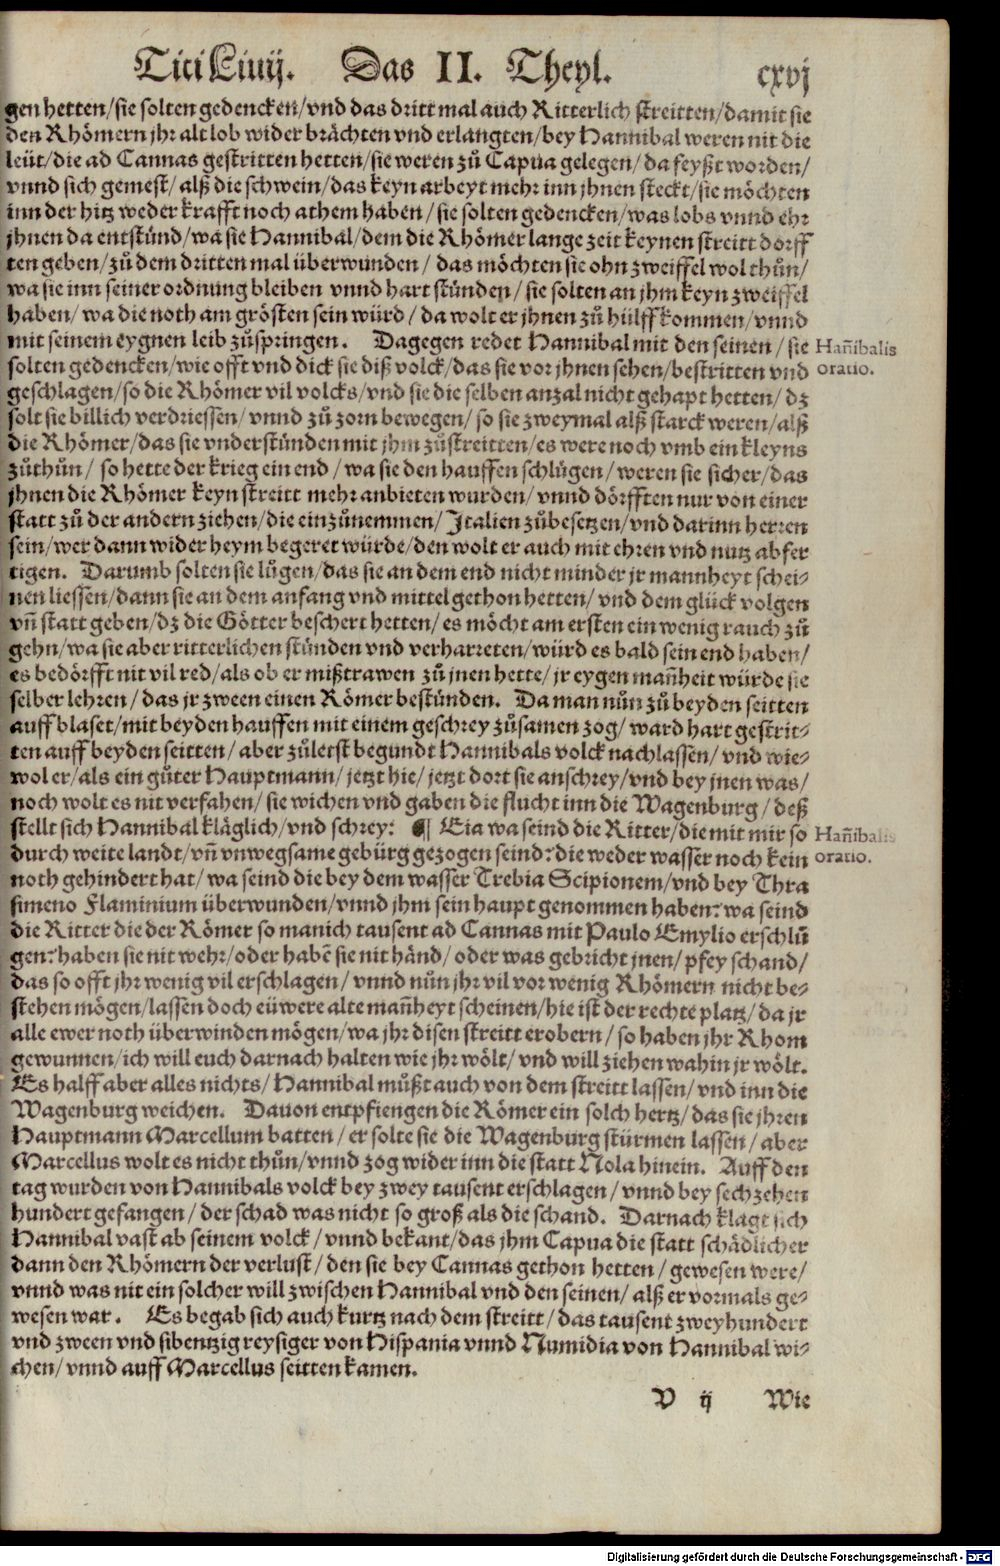 Titi Liuij. Das II. Theyl. cxvj
gen hetten/sie solten gedencken/vnd das dritt mal auch Ritterlich streitten/damit sie
den Rhömern jhr alt lob wider brächten vnd erlangten/bey Hannibal weren nit die
leüt/die ad Cannas gestritten hetten/sie weren zů Capua gelegen/da feyßt worden/
vnnd sich gemest/alß die schwein/das keyn arbeyt mehr inn jhnen steckt/sie möchten
inn der hitz weder krafft noch athem haben/sie solten gedencken/was lobs vnnd ehr
jhnen da entstünd/wa sie Hannibal/dem die Rhömer lange zeit keynen streitt dörff
ten geben/zů dem dritten mal überwunden/das möchten sie ohn zweiffel wol thůn/
wa sie inn seiner ordnung bleiben vnnd hart stünden/sie solten an jhm keyn zweiffel
haben/wa die noth am grösten sein würd/da wolt er jhnen zů hülff kommen/vnnd
mit seinem eygnen leib zůspringen. Dagegen redet Hannibal mit den seinen/sie
Hañibalis
solten gedencken/wie offt vnd dick sie diß volck/das sie vor jhnen sehen/bestritten vnd
oratio.
geschlagen/so die Rhömer vil volcks/vnd sie die selben anzal nicht gehapt hetten/dz
solt sie billich verdriessen/vnnd zů zorn bewegen/so sie zweymal alß starck weren/alß
die Rhömer/das sie vnderstünden mit jhm zůstreitten/es were noch vmb ein kleyns
zůthůn/so hette der krieg ein end/wa sie den hauffen schlügen/weren sie sicher/das
jhnen die Rhömer keyn streitt mehr anbieten wurden/vnnd dörfften nur von einer
statt zů der andern ziehen/die einzůnemmen/Italien zůbesetzen/vnd darinn herren
sein/wer dann wider heym begeret würde/den wolt er auch mit ehren vnd nutz abfer
tigen. Darumb solten sie lůgen/das sie an dem end nicht minder jr mannheyt schei-
nen liessen/dann sie an dem anfang vnd mittel gethon hetten/vnd dem glück volgen
vñ statt geben/dz die Götter beschert hetten/es möcht am ersten ein wenig rauch zů
gehn/wa sie aber ritterlichen stünden vnd verharreten/würd es bald sein end haben/
es bedörfft nit vil red/als ob er mißtrawen zů jnen hette/jr eygen mañheit würde sie
selber lehren/das jr zween einen Römer bestünden. Da man nůn zů beyden seitten
auff blaset/mit beyden hauffen mit einem geschrey zůsamen zog/ward hart gestrit-
ten auff beyden seitten/aber zůletst begundt Hannibals volck nachlassen/vnd wie-
wol er/als ein gůter Hauptmann/jetzt hie/jetzt dort sie anschrey/vnd bey jnen was/
noch wolt es nit verfahen/sie wichen vnd gaben die flucht inn die Wagenburg/deß
stellt sich Hannibal kläglich/vnd schrey: ¶ Eia wa seind die Ritter/die mit mir so
Hañibalis
durch weite landt/vñ vnwegsame gebürg gezogen seind? die weder wasser noch kein
oratio.
noth gehindert hat/wa seind die bey dem wasser Trebia Scipionem/vnd bey Thra
simeno Flaminium überwunden/vnnd jhm sein haupt genommen haben? wa seind
die Ritter die der Römer so manich tausent ad Cannas mit Paulo Emylio erschlů
gen? haben sie nit wehr/oder habē sie nit händ/oder was gebricht jnen/pfey schand/
das so offt jhr wenig vil erschlagen/vnnd nůn jhr vil vor wenig Rhömern nicht be-
stehen mögen/lassen doch eüwere alte mañheyt scheinen/hie ist der rechte platz/da jr
alle ewer noth überwinden mögen/wa jhr disen streitt erobern/so haben jhr Rhom
gewunnen/ich will euch darnach halten wie jhr wölt/vnd will ziehen wahin jr wölt.
Es halff aber alles nichts/Hannibal můßt auch von dem streitt lassen/vnd inn die
Wagenburg weichen. Dauon entpfiengen die Römer ein solch hertz/das sie jhren
Hauptmann Marcellum batten/er solte sie die Wagenburg stürmen lassen/aber
Marcellus wolt es nicht thůn/vnnd zog wider inn die statt Nola hinein. Auff den
tag wurden von Hannibals volck bey zwey tausent erschlagen/vnnd bey sechzehen
hundert gefangen/der schad was nicht so groß als die schand. Darnach klagt sich
Hannibal vast ab seinem volck/vnnd bekant/das jhm Capua die statt schädlicher
dann den Rhömern der verlust/den sie bey Cannas gethon hetten/gewesen were/
vnnd was nit ein solcher will zwischen Hannibal vnd den seinen/alß er vormals ge-
wesen war. Es begab sich auch kurtz nach dem streitt/das tausent zweyhundert
vnd zween vnd sibentzig reysiger von Hispania vnnd Numidia von Hannibal wi-
chen/vnnd auff Marcellus seitten kamen.
V ij Wie
Digitalisierung gefördert durch die Deutsche Forschungsgemeinschaft - DFG